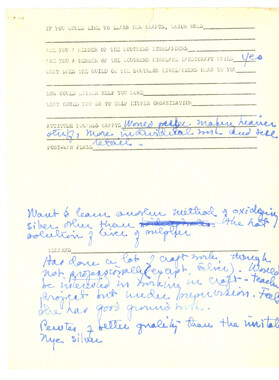 IF YOU WOULD LIKE TO LEARN NEW CRAFTS, WHICH ONES
ARE YOU A MEMBER OF THE SOUTHERN HIGHLANDERS
ARE YOU A MEMBER OF THE SOUTHERN HIGHLAND HANDICRAFT GUILD yes
WHAT DOES THE GUILD OR THE SOUTHERN HIGHLANDERS MEAN TO YOU
HOW COULD EITHER HELP YOU MORE
WHAT COULD YOU DO TO HELP EITHER ORGANIZATION
ATTITUDE TOWARDS CRAFTS Would prefer making heavier
only, more individual work and sell
POST-WAR PLANS retail.
Want to learn another method of oxidizing
silver other than the hot
solution of liver of sulphur
REMARKS
Has done a lot of craft work, though
not professionally (except silver). Would
be interested in working in craft-teaching
project but under supervision. Feels
she has good ground work.
Pewter of better quality than the
silver